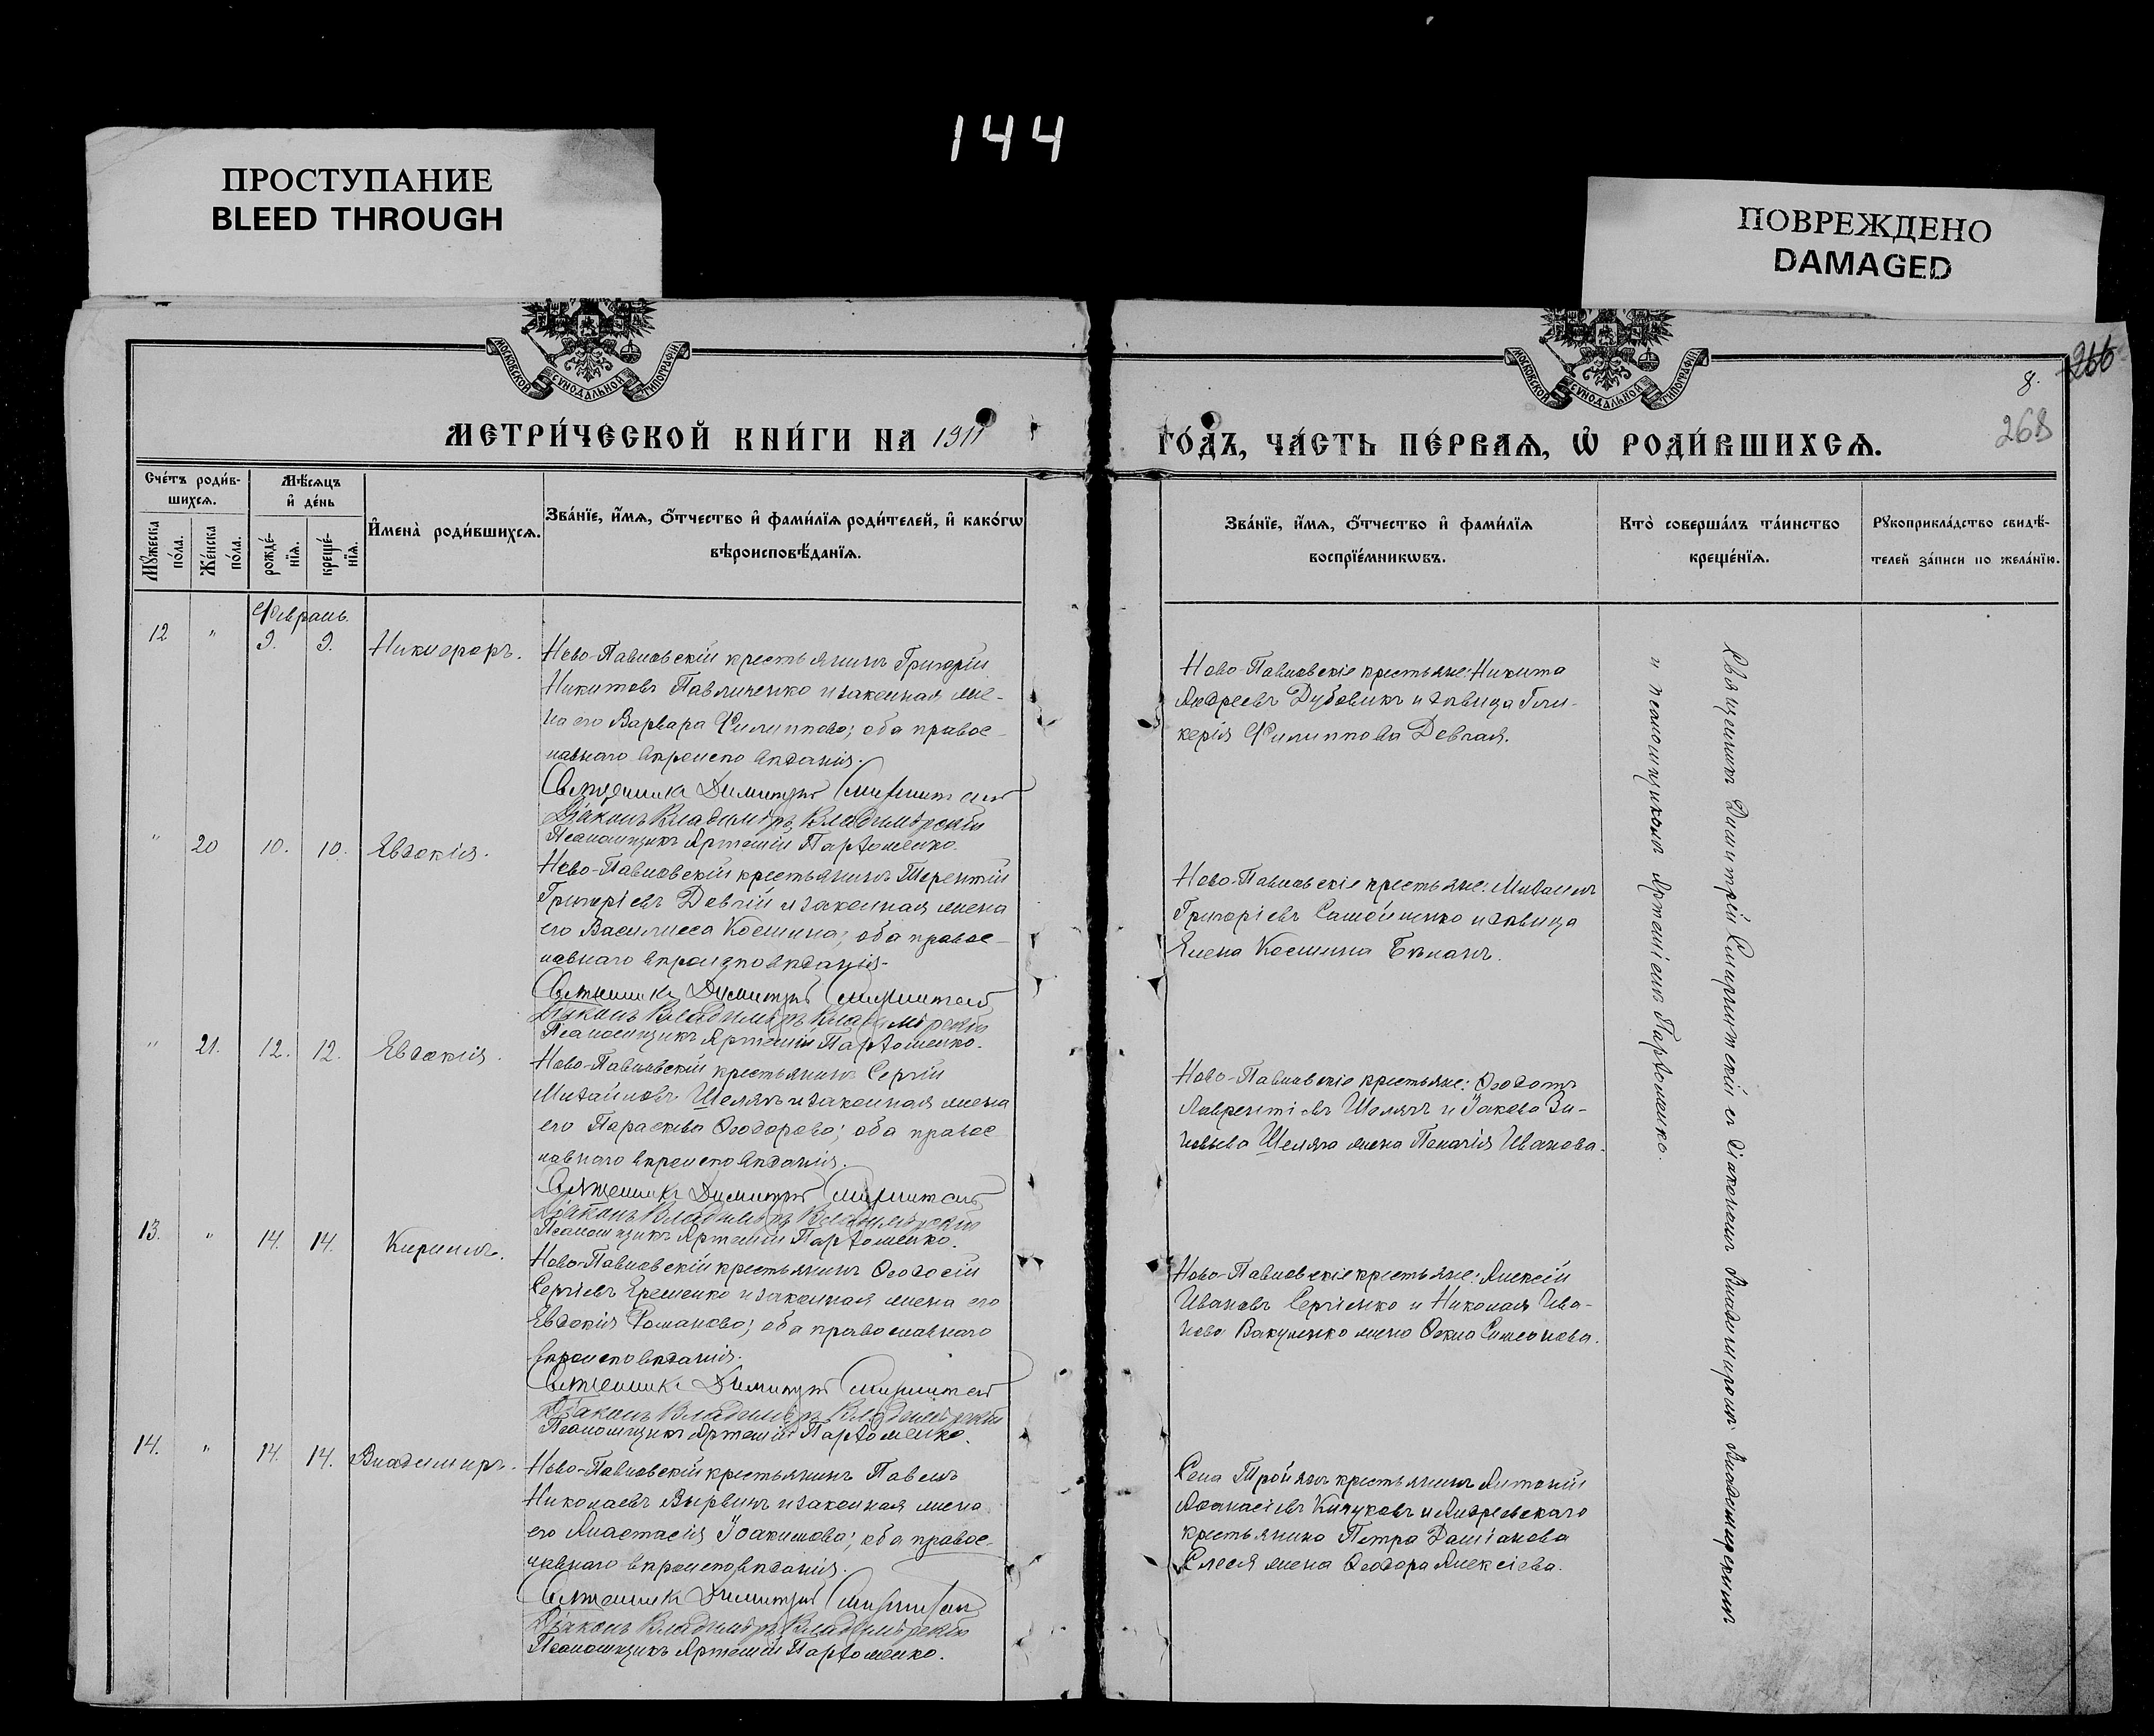 144
ПРОСТУПАНИЕ
BLEED THROUGH
ПОВРЕЖДЕНО
DAMAGED
МОСКОВСКОЙ СѴНОДАЛЬНОЙ ТИПОГРАФІИ
МОСКОВСКОЙ СѴНОДАЛЬНОЙ ТИПОГРАФІИ
266
8.
268
МЕТРИ́ЧЕСКОЙ КНИ́ГИ НА 1911
ГО́ДЪ, ЧА́СТЬ ПЕ́РВАѦ, Ѡ РОДИ́ВШИХСѦ.
Сче́тъ роди́в-
шихсѧ.
Мꙋ́жеска
по́ла.
Же́нска
по́ла.
Мѣ́сѧцъ
и҆ де́нь
рожде́-
нїѧ.
креще́-
нїѧ.
И҆мена̀ роди́вшихсѧ.
Зва́нїе, и҆́мѧ, ѻ҆́тчество и҆ фами́лїѧ роди́телей, и҆ како́гѡ
вѣроисповѣ́данїѧ.
Зва́нїе, и҆́мѧ, ѻ҆́тчество и҆ фами́лїѧ
воспрїе́мникѡвъ.
Кто̀ соверша́лъ та́инство
креще́нїѧ.
Рꙋкоприкла́дство свидѣ́-
телей за́писи по жела́нїю.
Февраль.
12 " 9. 9. Никифоръ.
Ново-Павловскій крестьянинъ Григорій
Никитовъ Павличенко и законная же-
на его Варвара Филиппова; оба правос-
лавнаго вѣроисповѣданія.
Священникъ Димитрій
Діаконъ Владиміръ Владимірскій
Псаломщикъ Артемій Пархоменко.
Ново-Павловскіе крестьяне: Никита
Андреевъ Дубовикъ и дѣвица Гли-
керія Филиппова Довгая.
" 20 10. 10. Евдокія.
Ново-Павловскій крестьянинъ Терентій
Григоріевъ Довгій и законная жена
его Василисса Космина; оба правос-
лавнаго вѣроисповѣданія.
Священникъ Димитрій
Діаконъ Владиміръ Владимірскій
Псаломщикъ Артемій Пархоменко.
Ново-Павловскіе крестьяне: Михаилъ
Григоріевъ Самойленко и дѣвица
Елена Космина Бѣланъ.
" 21. 12. 12. Евдокія.
Ново-Павловскій крестьянинъ Сергій
Михайловъ Шелягъ и законная жена
его Параскева Ѳеодорова; оба правос-
лавнаго вѣроисповѣданія.
Священникъ Димитрій
Діаконъ Владиміръ Владимірскій
Псаломщикъ Артемій Пархоменко.
Ново-Павловскіе крестьяне: Ѳеодотъ
Лаврентіевъ Шелягъ и Іакова Зи-
новьева Шеляга жена Пелагія Иванова.
13. " 14. 14. Кириллъ.
Ново-Павловскій крестьянинъ Ѳеодосій
Сергіевъ Еременко и законная жена его
Евдокія Романова; оба православнаго
вѣроисповѣданія.
Священникъ Димитрій
Діаконъ Владиміръ Владимірскій
Псаломщикъ Артемій Пархоменко.
Ново-Павловскіе крестьяне: Алексій
Ивановъ Сергіенко и Николая Ива-
нова Вакуленко жена Ѳекла Симеонова.
14. " 14. 14. Владимиръ.
Ново-Павловскій крестьянинъ Павелъ
Николаевъ Вырвинъ и законная жена
его Анастасія Іоакимова; оба правос-
лавнаго вѣроисповѣданія.
Священникъ Димитрій
Діаконъ Владиміръ Владимірскій
Псаломщикъ Артемій Пархоменко.
Села Троянъ крестьянинъ Антоній
Аѳанасіевъ и Андреевскаго
крестьянина Петра Даміанова
жена Ѳеодора Алексіева.
Священникъ Димитрій съ діакономъ Владимиромъ Владимирскимъ
и псаломщикомъ Артеміемъ Пархоменко.